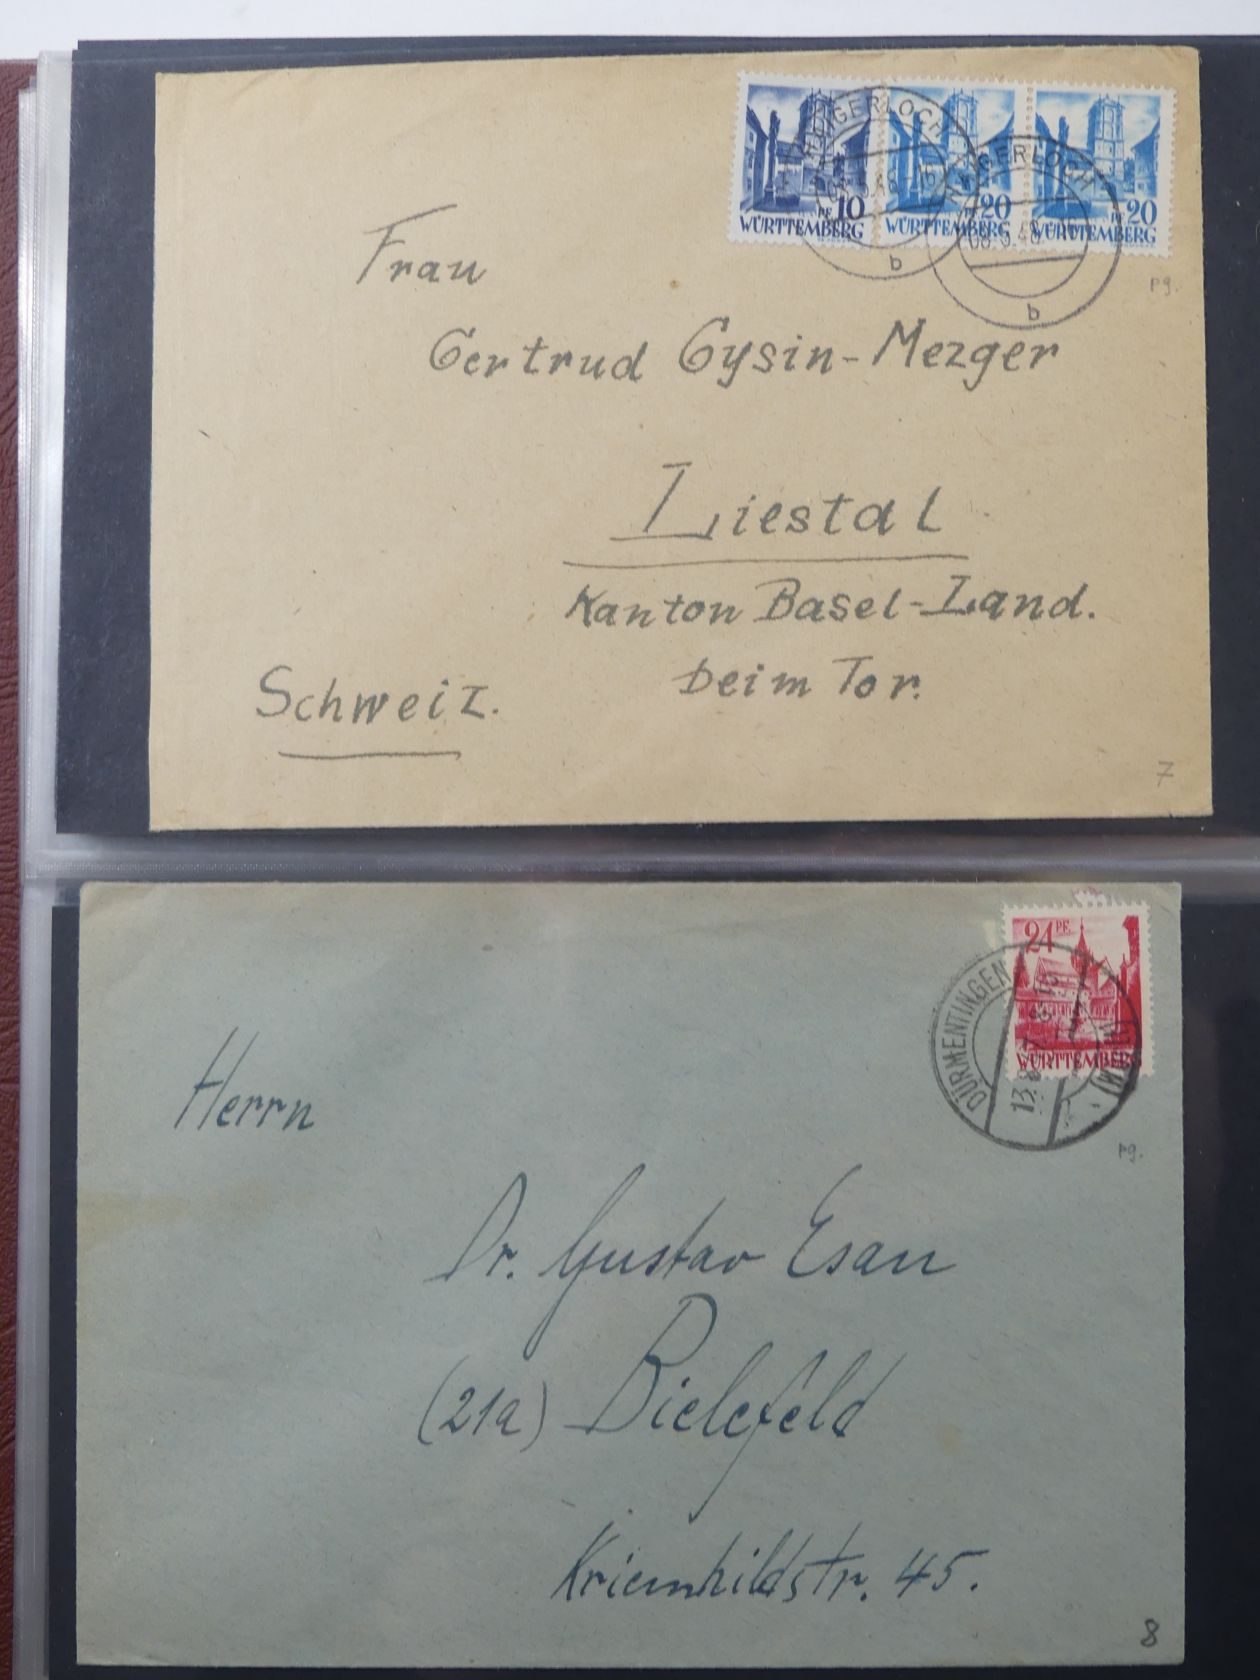 PF 10
WÜRTTEMBERG
PF 20
WÜRTTEMBERG
PF 20
WÜRTTEMBERG
HAIGERLOCH
b
HAIGERLOCH
b
pg.
Frau
Gertrud Gysin-Mezger
Liestal
Kanton Basel-Land.
beim Tor.
Schweiz.
7
24 PF.
WÜRTTEMBERG
DÜRMENTINGEN
pg.
Herrn
Dr. Gustav Esau
(21a) Bielefeld
Kriemhildstr. 45.
8